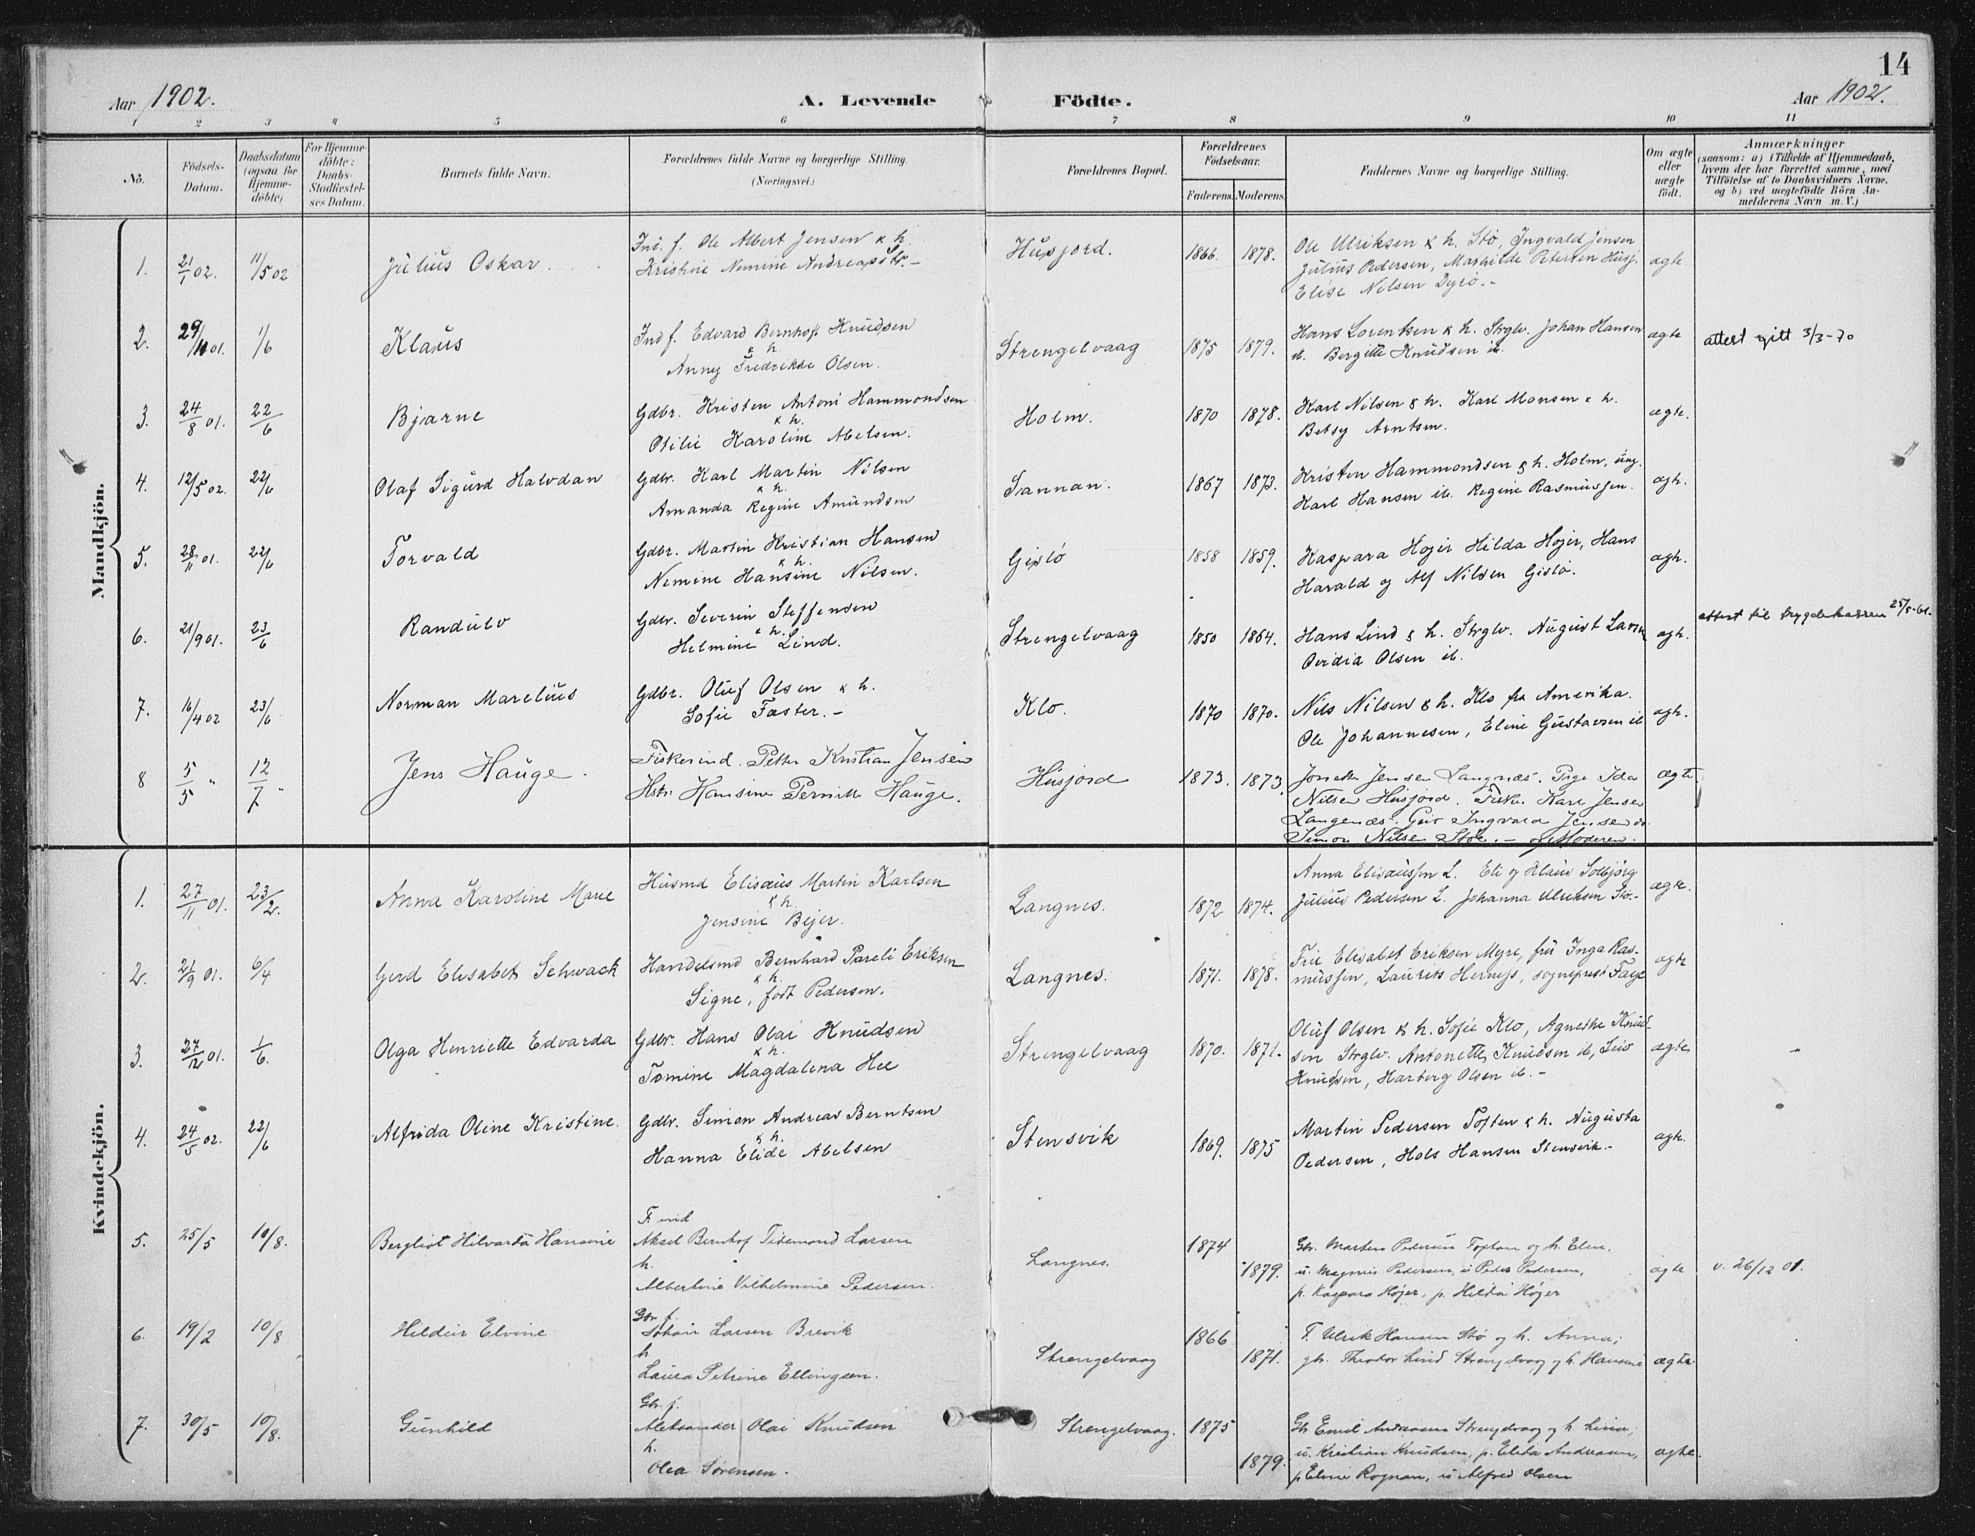 14
Aar 1902. A. Levende Födte. Aar 1902.
1 2 3 4 5 6 7 8 9 10 11
No. Födsels-Datum. Daabsdatum (ogsaa for Hjemme-döbte) For Hjemme-döbte: Daabs-Stadfæstel-ses Datum. Barnets fulde Navn. Forældrenes fulde Navne og borgerlige Stilling. (Næringsvei.) Forældrenes Bopæl. Forældrenes Födselsaar. Faderens. Moderens. Faddernes Navne og borgerlige Stilling. Om ægte eller uægte födt. Anmærkninger (saasom: a) i Tilfælde af Hjemmedaab, hvem der har forrettet samme, med Tilföielse af to Daabsvidners Navne, og b) ved uægtefödte Börn An-melderens Navn m. V.)
Mandkjön.
Ind. f. Ole Albert Jensen & h.
1. 21/1 02. 11/5 02 Julius Oskar Kristine Nemine Andreasdtr. Husjord. 1866. 1878. Ole Ulriksen & h. Stø, Ingvald Jensen
Julius Pedersen, Mathilde Petersen Husj. ægte
Elise Nilsen Dyrö.
2. 29/11 01. 1/6 Klaus Ind f. Edvard Bernhoft Knudsen
& h.
Anny Fredrikke Olsen. Strengelvaag 1875 1879. Hans Lorentsen & h. Strglv. Johan Hansen
ib. Bergitte Knudsen ib. ægte attest gitt 3/3-70
3. 24/8 01. 22/6 Bjarne Gdbr. Kristen Antoni Hammondsen
& h.
Otilie Karoline Abelsen. Holm. 1870 1878. Karl Nilsen & h. Karl Monsen & h.
Betsy Arntsen. ægte.
4. 12/5 02. 22/6 Olaf Sigurd Halvdan Gdbr. Karl Martin Nilsen
& h.
Amanda Regine Amundsen Sannan. 1867 1873. Kristen Hammondsen & h. Holm, ung.
Karl Hansen ib. Regine Rasmussen. ægt.
5. 28/11 01. 22/6 Torvald Gdbr. Martin Kristian Hansen
& h.
Nemine Hansine Nilsen. Gislö 1858 1859. Kaspara Hojer Hilda Hojer, Hans
Harald og Alf Nilsen Gislö. ægt.
6. 21/9 01. 23/6 Randulv Gdbr. Severin Steffensen
& h.
Helmine Lind. Strengelvaag 1850 1864. Hans Lind & h. Strglv. August Larsen
Ovidia Olsen ib. ægt. attest til trygdekassen 25/5-61.
7. 16/4 02 23/6 Norman Marelius Gdbr. Oluf Olsen & h.
Sofie Faster. Klo. 1870 1870. Nils Nilsen & h. Klo fra Amerika.
Ole Johannesen, Eline Gustavsen ib ægt.
8 5/5 " 12/7 " Jens Hauge. Fiskerind. Petter Kristian Jensen
Hstr. Hansine Pernille Hauge. Husjord 1873. 1873. Jensen Langnæs. Pige Ida
Nilsen Husjord. Fisker Karl Jensen
Langenæs. Ingvald Jensen do.
Simon Nilsen Stö. og Moderen. ægte
Kvindekjön.
1. 27/11 01. 23/2. Anna Karoline Marie Husmd Elisæus Martin Karlsen
& h.
Jensine Bejer. Langnes. 1872 1874. Anna Elisæussen L. Eli og Klaus Solbjörg
Julius Pedersen L. Johanna Ulriksen Stö. ægte.
2. 21/9 01. 6/4 Gerd Elisabet Schwack Handelsmd Bernhard Pareli Eriksen
& h.
Signe, født Pedersen. Langnes. 1871. 1878. Frue Elisabet Eriksen Myre, fru Inga Ras-
mussen, Laurits Herness, sogneprest Faye ægte
3. 27/12 01. 1/6. Olga Henriette Edvarda Gdbr. Hans Olai Knudsen
& h.
Tomine Magdalena Hee Strengelvaag 1870. 1871. Oluf Olsen & h. Sofie Klo, Agnethe Knud-
sen Strglv. Antonette Knudsen ib,
Knudsen, Hartvig Olsen ib. ægte
4. 24/5 02. 22/6 Alfrida Oline Kristine. Gdbr. Simon Andreas Berntsen
& h.
Hanna Elide Abelsen Stensvik 1869. 1875 Martin Pedersen Toften & h. Augusta
Pedersen, Hols Hansen Stensvik. ægt.
5. 25/5 10/8. Bergliot Hilvarda Hansine F. ind
Aksel Bernhof Tidemand Larsen
h.
Albertine Vilhelmine Pedersen. Langnes. 1874 1879. Gbr. Martin Pedersen Toften og h. Elen,
u. Magnus Pedersen, u Peder Pedersen,
p. Kaspara Höjer, p. Hilda Höjer ægte v. 26/12 01.
6. 19/2 10/8 Hildur Elvine Gbr. f.
Johan Larsen Brevik
h.
Laura Petrine Ellingsen. Strengelvaag 1866 1871. F. Ulrik Hansen Stø og h. Anna;
gbr. Theodor Lind Strengelvaag og h. Hansine ægte
7. 30/5 10/8. Gunhild Gbr. f.
Aleksander Olai Knudsen
h.
Olea Sörensen. Strengelvaag. 1875 1879. Gbr Emil Andreassen Strengelvaag og h Lina;
u. Kristian Knudsen, p. Elida Andreassen,
p Eline Rognan, u Alfred Olsen ægte.